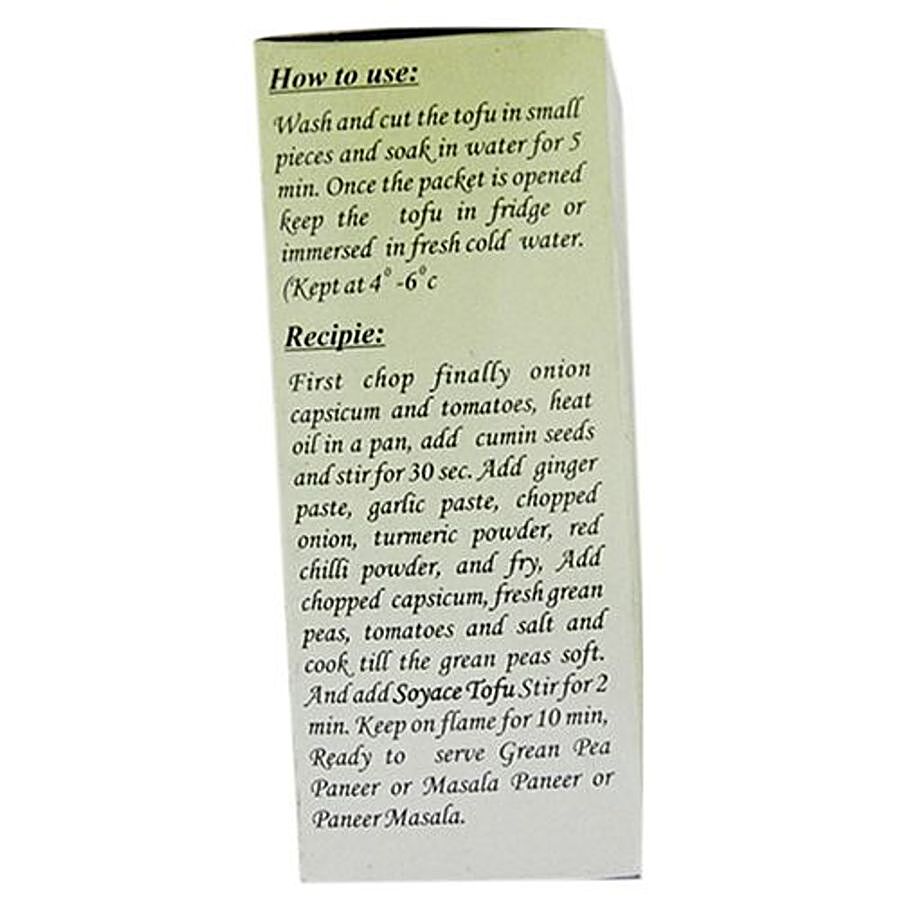 How to use:
Wash and cut the tofu in small
pieces and soak in water for 5
min. Once the packet is opened
keep the tofu in fridge or
immersed in fresh cold water.
(Kept at 4° -6°c
Recipie:
First chop finally onion
capsicum and tomatoes, heat
oil in a pan, add cumin seeds
and stir for 30 sec. Add ginger
paste, garlic paste, chopped
onion, turmeric powder, red
chilli powder, and fry, Add
chopped capsicum, fresh grean
peas, tomatoes and salt and
cook till the grean peas soft.
And add Soyace Tofu Stir for 2
min. Keep on flame for 10 min,
Ready to serve Grean Pea
Paneer or Masala Paneer or
Paneer Masala.